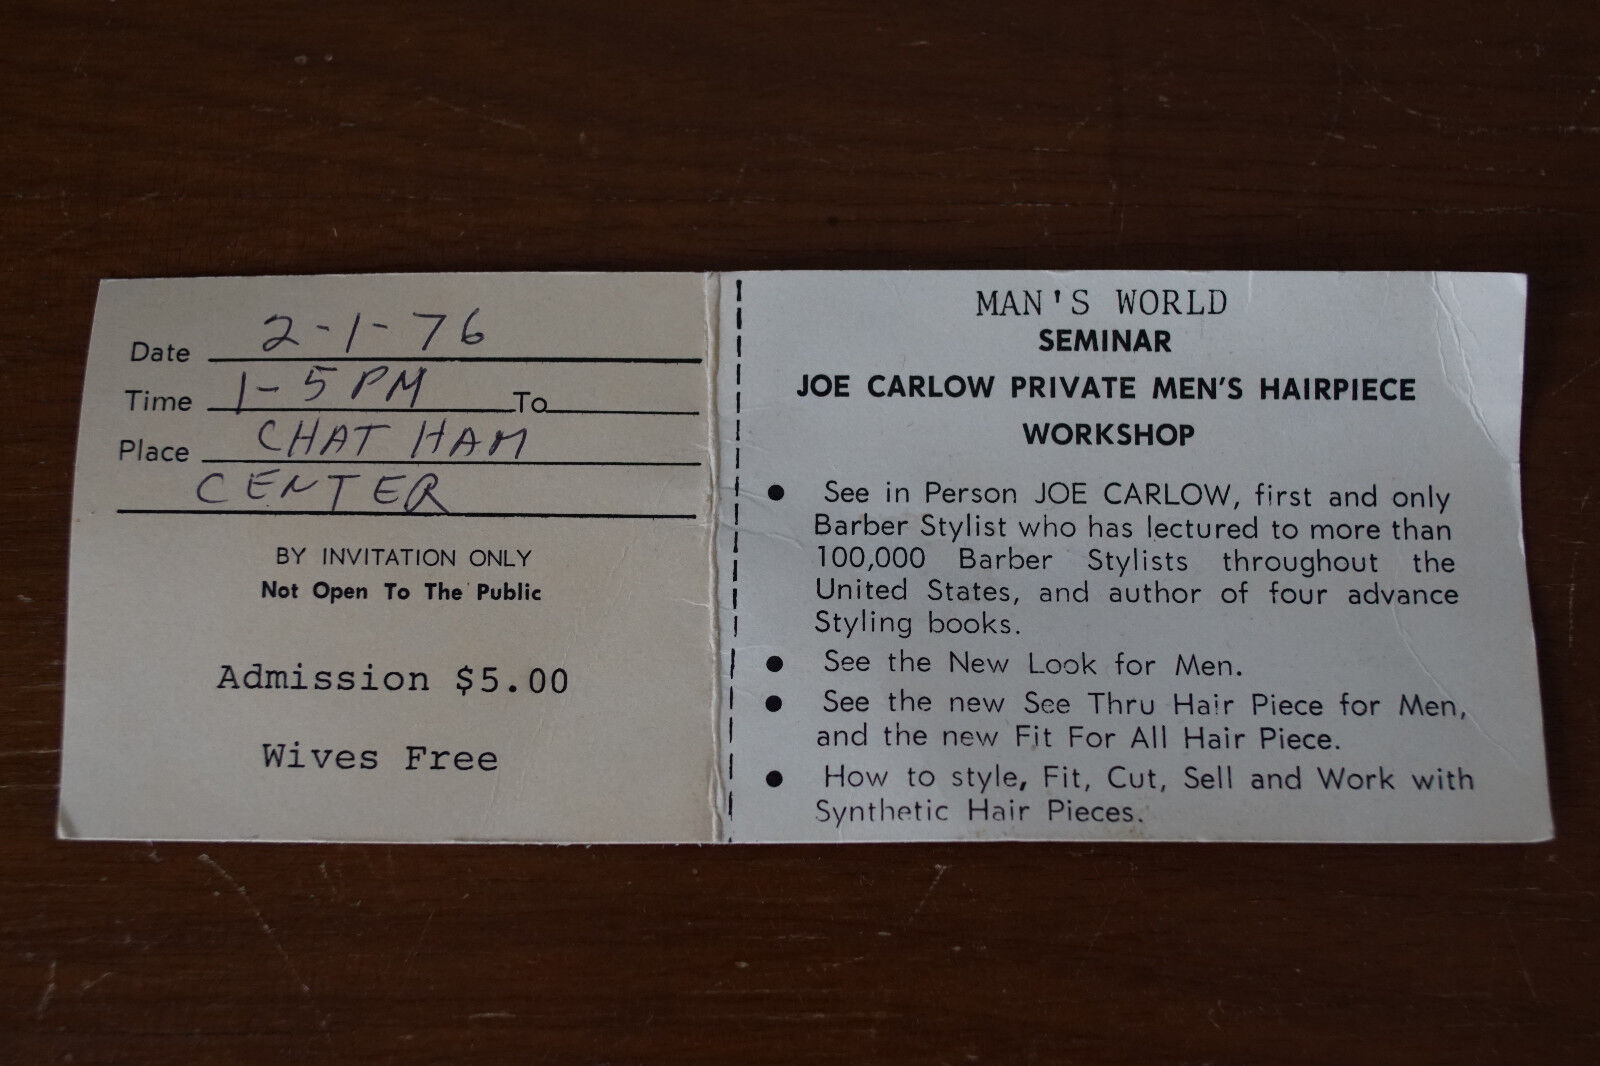 Date 2-1-76
Time 1-5 PM To
Place CHAT HAM
CENTER
BY INVITATION ONLY
Not Open To The Public
Admission $5.00
Wives Free
MAN'S WORLD
SEMINAR
JOE CARLOW PRIVATE MEN'S HAIRPIECE
WORKSHOP
● See in Person JOE CARLOW, first and only
Barber Stylist who has lectured to more than
100,000 Barber Stylists throughout the
United States, and author of four advance
Styling books.
● See the New Look for Men.
● See the new See Thru Hair Piece for Men,
and the new Fit For All Hair Piece.
● How to style, Fit, Cut, Sell and Work with
Synthetic Hair Pieces.